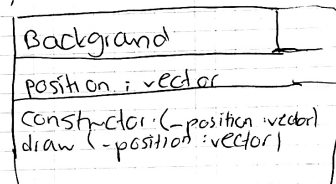 Background
position : vector
constructor (-position : vector)
draw (-position : vector)